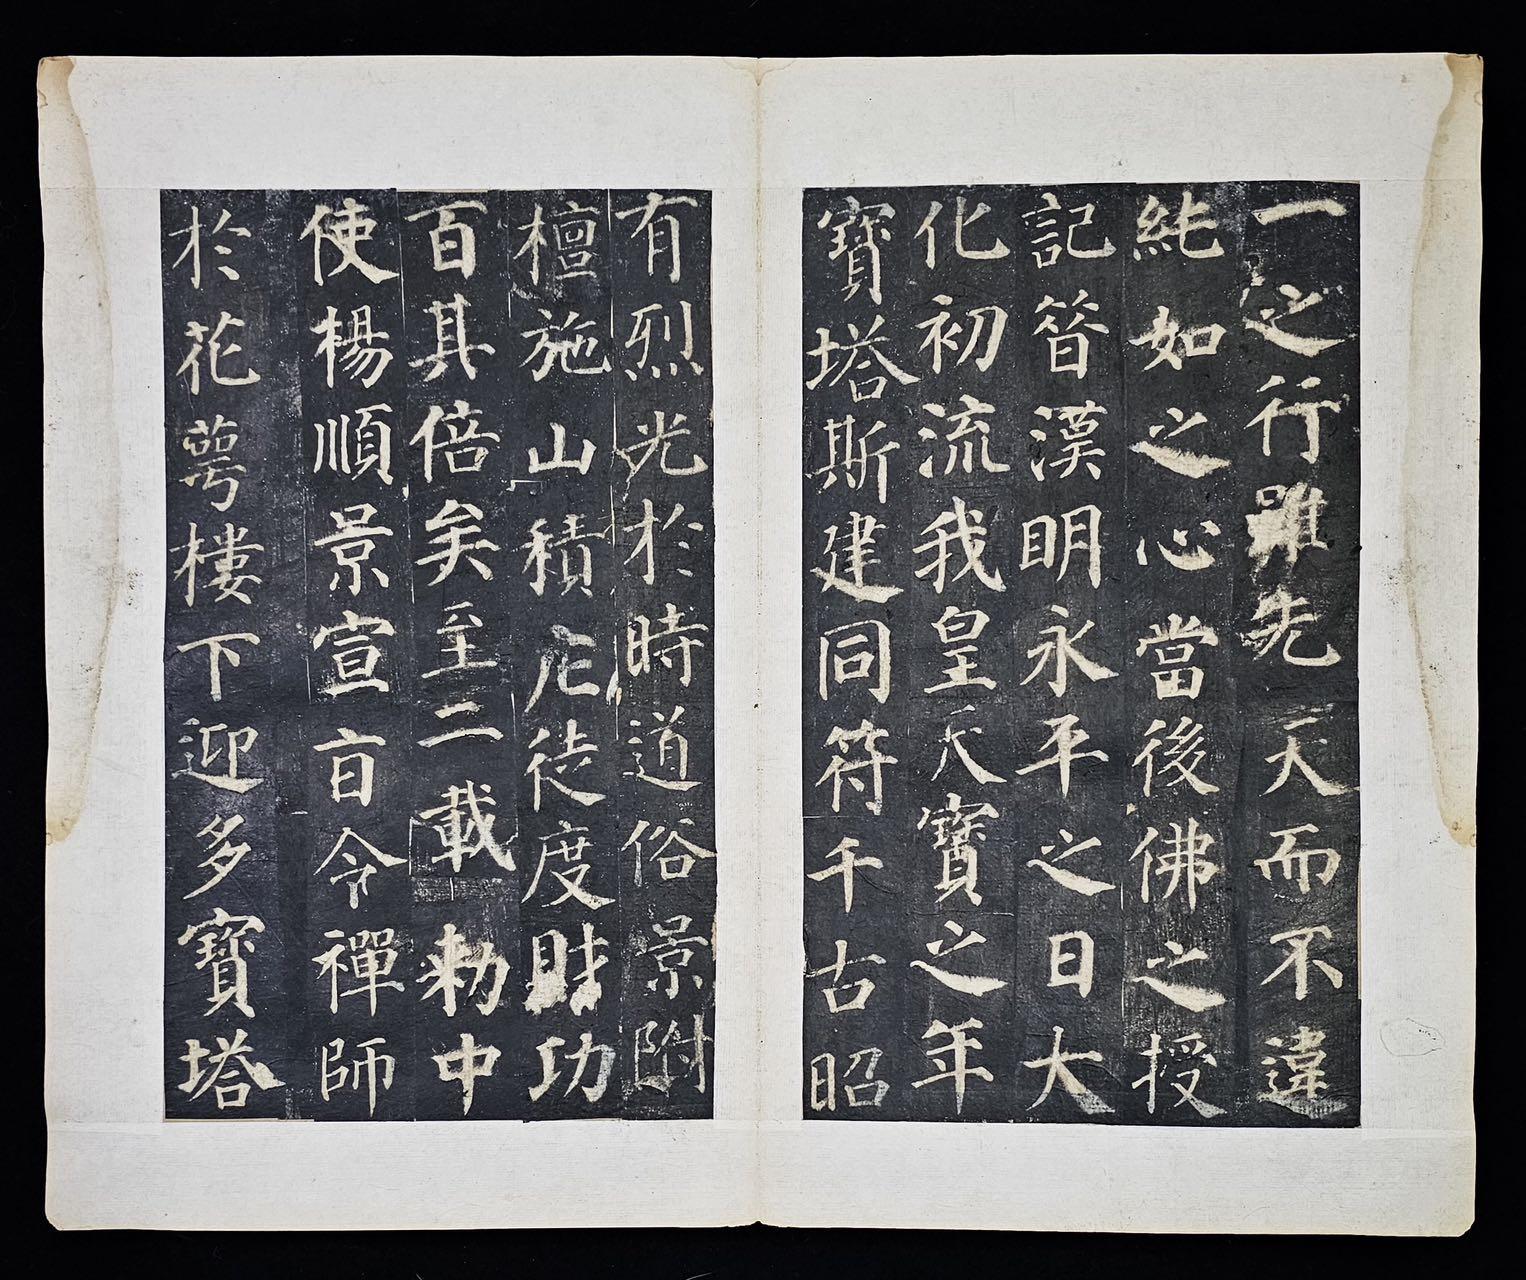 一之行雖先天而不違
純如之心當後佛之授
記昔漢明永平之日大
化初流我皇天寶之年
寶塔斯建同符千古昭
有烈光於時道俗景附
檀施山積庀徒度財功
百其倍矣至二載勅中
使楊順景宣旨令禪師
於花萼樓下迎多寶塔